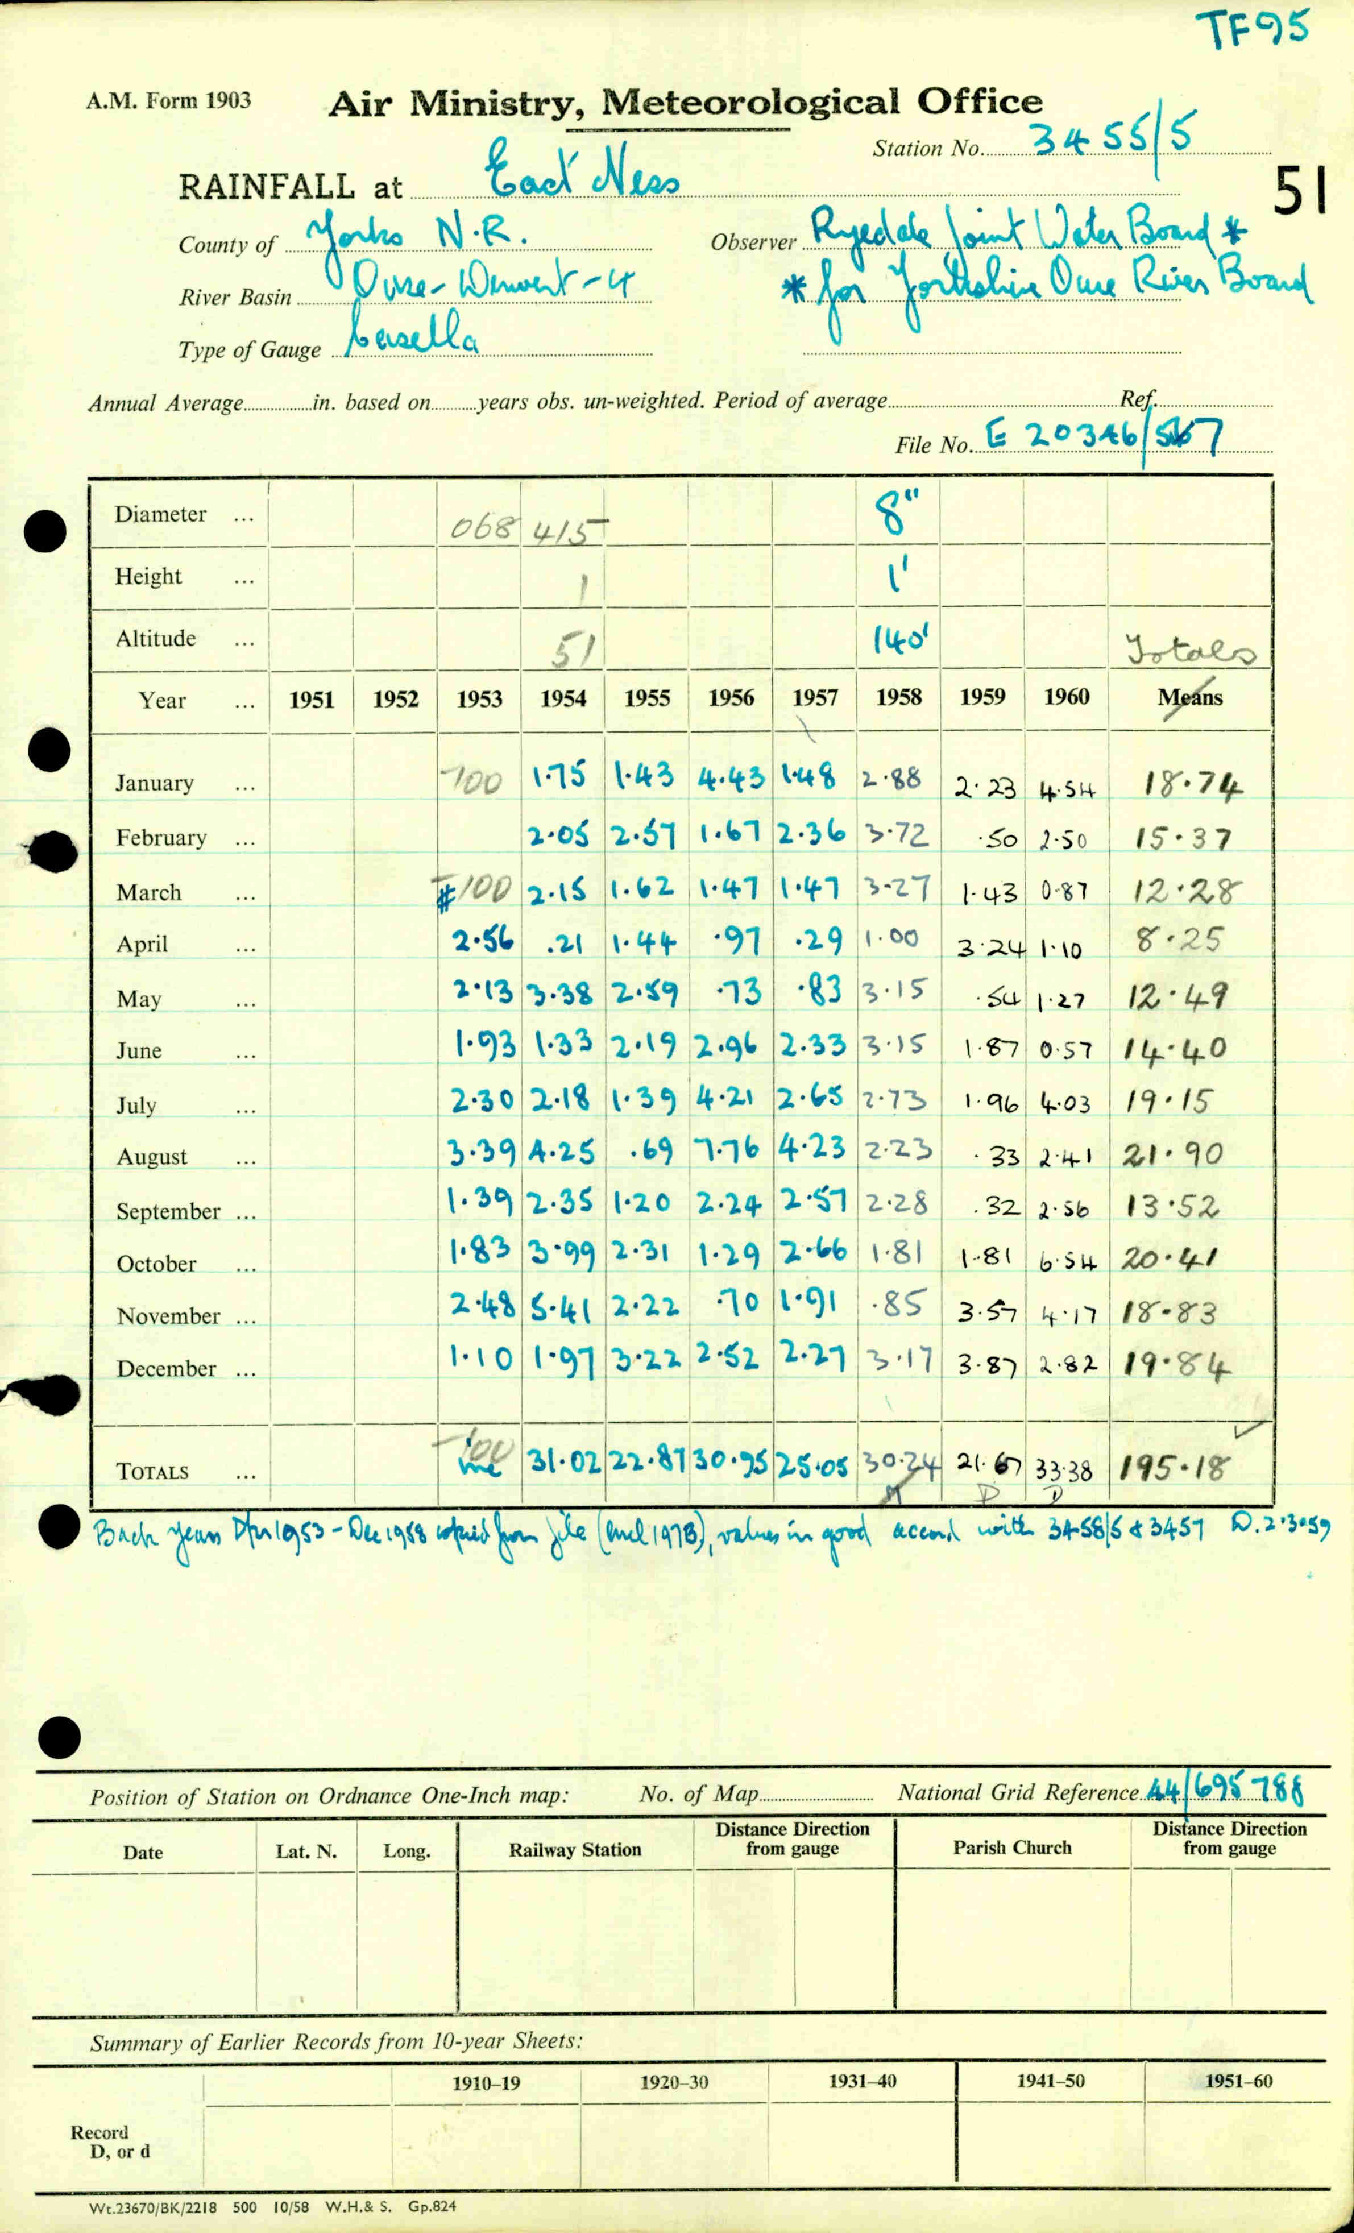 TF95
A.M. Form 1903 Air Ministry, Meteorological Office
Station No. 3455/5
RAINFALL at East Ness 51
County of Yorks N.R. Observer Ryedale Joint Water Board *
River Basin Ouse-Derwent-4 * for Yorkshire Ouse River Board
Type of Gauge Casella
Annual Average in. based on years obs. un-weighted. Period of average Ref.
File No. E 20346/567
Diameter ... 068 415 8"
Height ... 1 1'
Altitude ... 51 140' Totals
Year ... 1951 1952 1953 1954 1955 1956 1957 1958 1959 1960 Means
January ... -100 1.75 1.43 4.43 1.48 2.88 2.23 4.54 18.74
February ... 2.05 2.57 1.67 2.36 3.72 .50 2.50 15.37
March ... -100 2.15 1.62 1.47 1.47 3.27 1.43 0.87 12.28
April ... 2.56 .21 1.44 .97 .29 1.00 3.24 1.10 8.25
May ... 2.13 3.38 2.59 .73 .83 3.15 .54 1.27 12.49
June ... 1.93 1.33 2.19 2.96 2.33 3.15 1.87 0.57 14.40
July ... 2.30 2.18 1.39 4.21 2.65 2.73 1.96 4.03 19.15
August ... 3.39 4.25 .69 7.76 4.23 2.23 .33 2.41 21.90
September ... 1.39 2.35 1.20 2.24 2.57 2.28 .32 2.56 13.52
October ... 1.83 3.99 2.31 1.29 2.66 1.81 1.81 6.54 20.41
November ... 2.48 5.41 2.22 .70 1.91 .85 3.57 4.17 18.83
December ... 1.10 1.97 3.22 2.52 2.27 3.17 3.87 2.82 19.84
TOTALS ... -100 inc 31.02 22.87 30.95 25.05 30.24 21.67 33.38 195.18
M D D
Back years Apr 1953 - Dec 1958 copied from file (encl 197B), values in good accord with 3458/5 & 3457 D. 2.3.59
Position of Station on Ordnance One-Inch map: No. of Map National Grid Reference 44/695 788
Date Lat. N. Long. Railway Station Distance Direction from gauge Parish Church Distance Direction from gauge
Summary of Earlier Records from 10-year Sheets:
1910–19 1920–30 1931–40 1941–50 1951–60
Record
D, or d
Wt.23670/BK/2218 500 10/58 W.H.& S. Gp.824